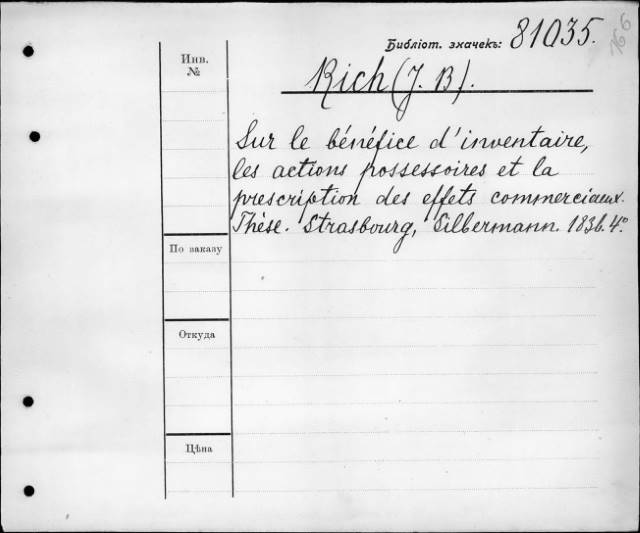 Библіот. значекъ: 81035.
766
Инв.
№
Rich (J. B).
Sur le bénéfice d'inventaire,
les actions possessoires et la
prescription des effets commerciaux.
Thése. Strasbourg, Silbermann. 1836. 4°.
По заказу
Откуда
Цѣна